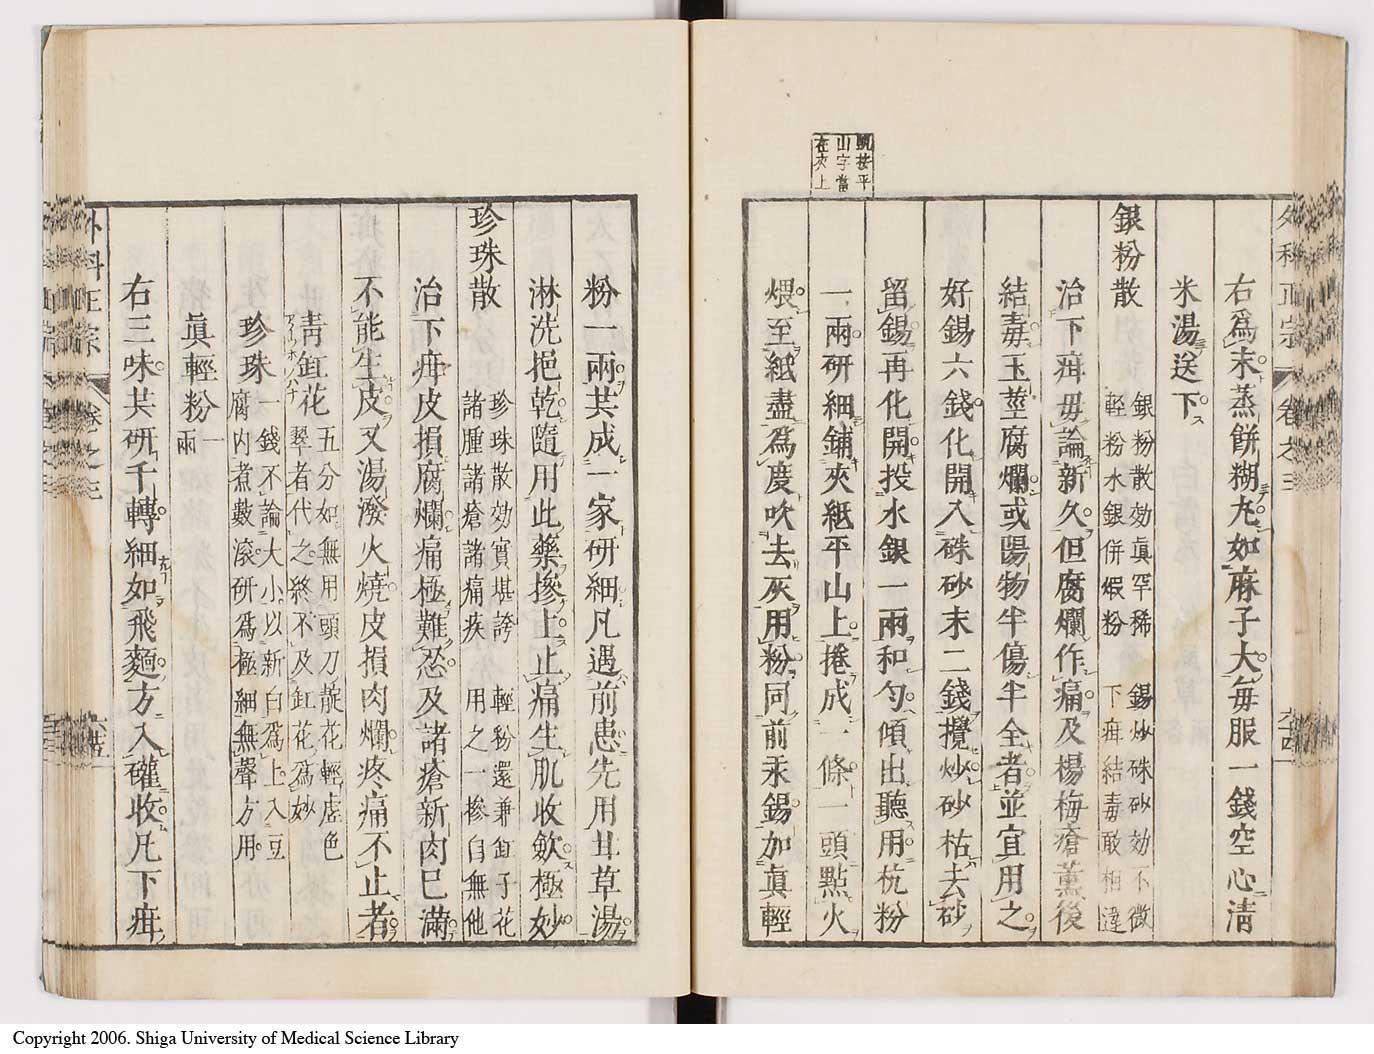 外科正宗 卷之三 六十四
右爲末蒸餅糊丸如麻子大每服一錢空心清
米湯送下
銀粉散
銀粉散効眞罕稀 錫炒硃砂効不微
輕粉水銀併煆粉 下疳結毒敢相違
治下疳毋論新久但腐爛作痛及楊梅瘡薰後
結毒玉莖腐爛或陽物半傷半全者並宜用之
好錫六錢化開入硃砂末二錢攪炒砂枯去砂
留錫再化開投水銀一兩和勻傾出聽用杭粉
一兩研細鋪夾紙平山上捲成一條一頭點火
煨至紙盡爲度吹去灰用粉同前汞錫加眞輕
按平
山字當
在夾上
粉一兩共成一家研細凡遇前患先用甘草湯
淋洗挹乾隨用此藥摻上止痛生肌收斂極妙
珍珠散
珍珠散効實堪誇 輕粉還兼缸子花
諸腫諸瘡諸痛疾 用之一摻自無他
治下疳皮損腐爛痛極難忍及諸瘡新肉已滿
不能生皮又湯潑火燒皮損肉爛疼痛不止者
靑缸花
五分如無用頭刀靛花輕虛色
翠者代之終不及缸花爲妙
珍珠
一錢不論大小以新白爲上入豆
腐内煮數滾研爲極細無聲方用
眞輕粉
一
兩
右三味共研千轉細如飛麵方入礶收凡下疳
外科正宗 卷之三 六十五
Copyright 2006. Shiga University of Medical Science Library